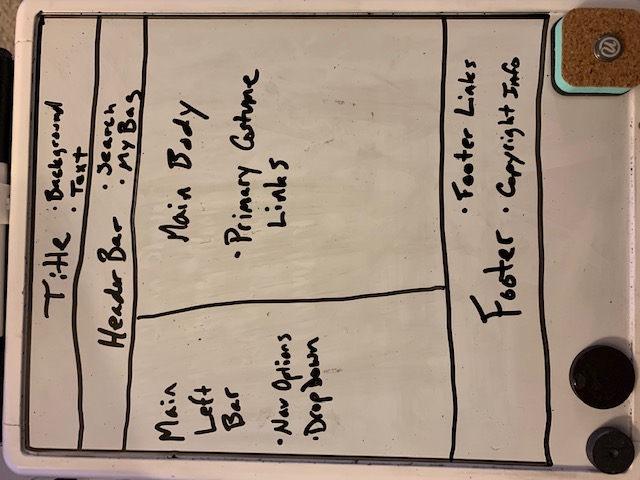 Title
• Background
• Text
Header Bar
• Search
• My Bag
Main
Left
Bar
• Nav Options
• Drop Down
Main Body
• Primary Costume
Links
Footer
• Footer Links
• Copyright Info